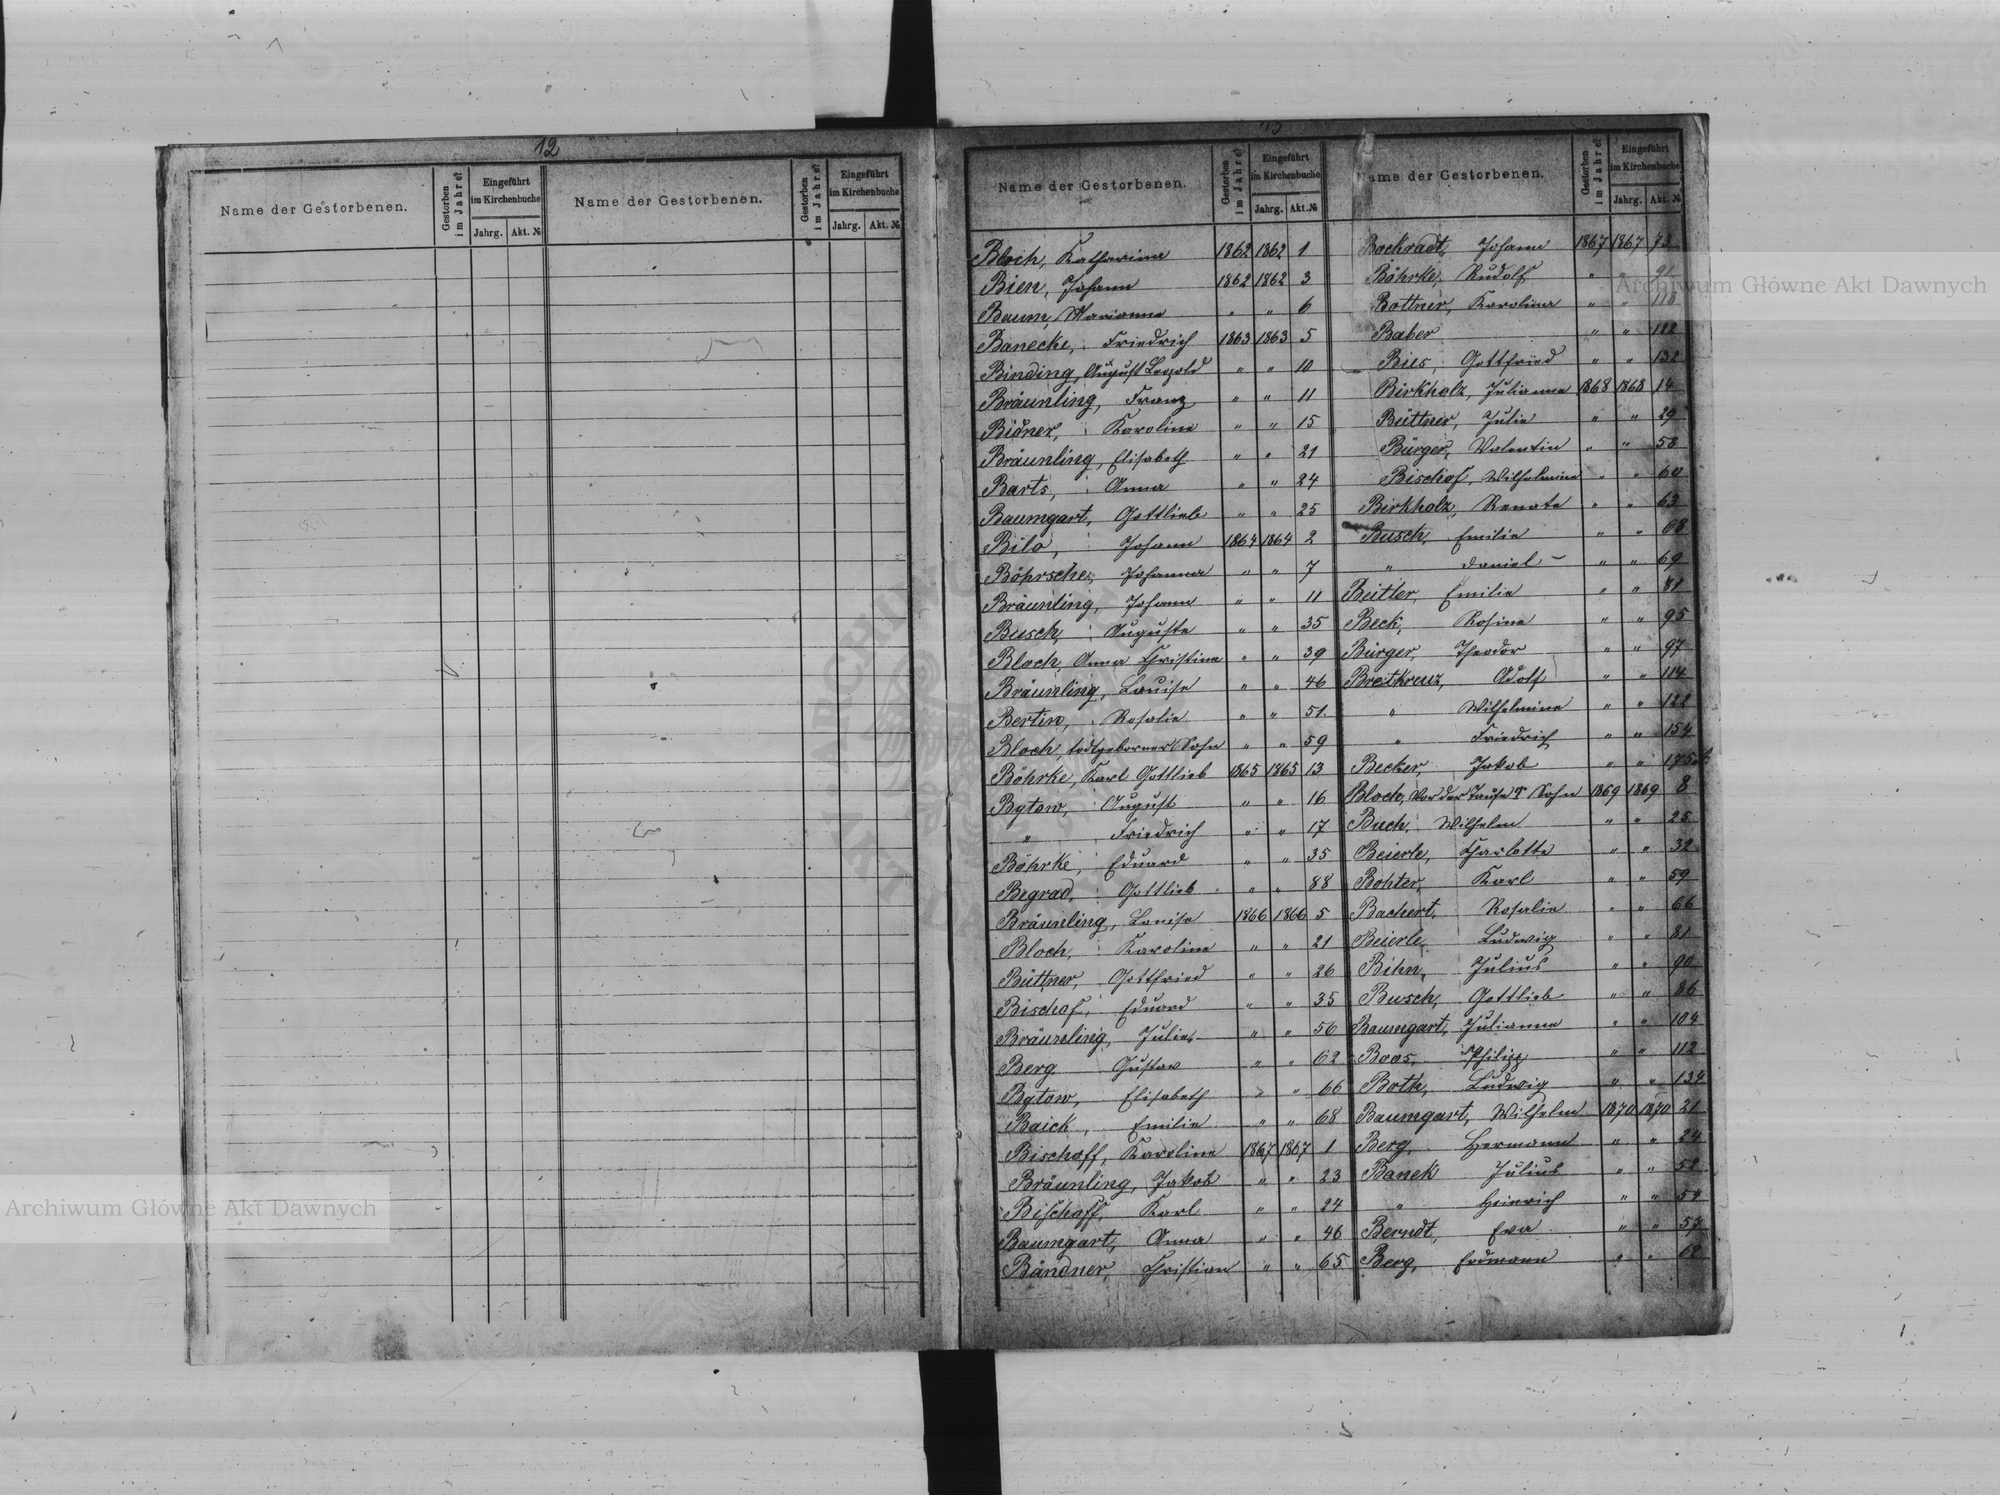 12
Name der Gestorbenen. Gestorben im Jahre? Eingeführt im Kirchenbuche Jahrg. Akt. № Name der Gestorbenen. Gestorben im Jahre? Eingeführt im Kirchenbuche Jahrg. Akt. №
Name der Gestorbenen. Gestorben im Jahre? Eingeführt im Kirchenbuche Jahrg. Akt. №
Bloch, Katharina 1862 1862 1
Bien, Johann 1862 1862 3
Baum, Marianna " " 6
Banecke, Friedrich 1863 1863 5
Binding, August Leopold " " 10
Bräunling, Franz " " 11
Bidner, Karoline " " 15
Bräunling, Elisabeth " " 21
Barts, Anna " " 24
Baumgart, Gottlieb " " 25
Bilo, Johann 1864 1864 2
Böhrsche, Johanna " " 7
Bräunling, Johann " " 11
Busch, Auguste " " 35
Bloch, Anna Christina " " 39
Bräunling, Louise " " 46
Bertin, Rosalie " " 51.
Bloch, todtgeborner Sohn " " 59
Böhrke, Karl Gottlieb 1865 1865 13
Bytow, August " " 16
" Friedrich " " 17
Böhrke, Eduard " " 35
Begrad, Gottlieb " " 88
Bräunling, Louise 1866 1866 5
Bloch, Karoline " " 21
Büttner, Gottfried " " 26
Bischof, Eduard " " 35
Bräunling, Julie " " 56
Berg Gustav " " 62
Bytow, Elisabeth " " 66
Baick, Emilie " " 68
Bischoff, Karoline 1867 1867 1
Bräunling, Jakob " " 23
Bischoff, Karl " " 24
Baumgart, Anna " " 46
Bändner, Christian " " 65
Name der Gestorbenen. Gestorben im Jahre? Eingeführt im Kirchenbuche Jahrg. Akt. №
Bockradt, Johann 1867 1867 73
Böhrke, Rudolf " " 91
Bottner, Karolina " " 118
Baber " " 122
Bies, Gottfried " " 132
Birkholz, Julianna 1868 1868 14
Büttner, Julie " " 29
Bürger, Valentin " " 58
Bischof, Wilhelmine " " 60
Birkholz, Renate " " 63
Busch, Emilie " " 68
" Daniel " " 69
Beitler, Emilie " " 81
Beck, Rosine " " 95
Bürger, Theodor " " 97
Breitkreuz, Adolf " " 114
" Wilhelmine " " 122
" Friedrich " " 154
Becker, Jakob " "
Bloch, vor der Taufe † Sohn 1869 1869 8
Buch, Wilhelm " " 25
Beierle, Charlotte " " 32
Bohter, Karl " " 59
Bachert, Rosalie " " 66
Beierle, Ludwig " " 81
Bihn, Julius " " 90
Busch, Gottlieb " " 86
Baumgart, Julianna " " 104
Boas, Philipp " " 112
Both, Ludwig " " 134
Baumgart, Wilhelm 1870 1870 21
Berg, Hermann " " 24
Banek Julius " " 52
" Heinrich " " 54
Berndt, Eva " "
Berg, Erdmann " " 62
Archiwum Główne Akt Dawnych
Archiwum Główne Akt Dawnych